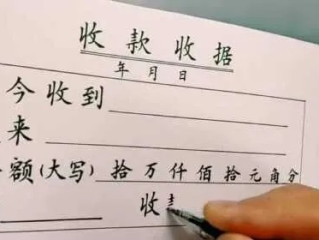 收款收据
年月日
今收到
来
额(大写)拾万仟佰拾元角分
收